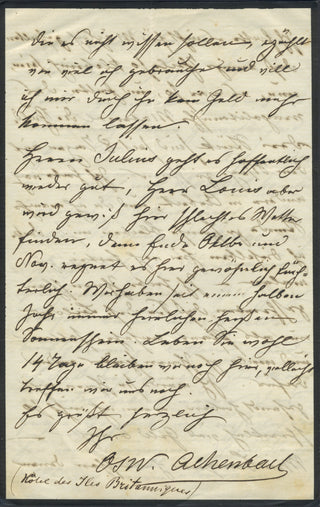 die es nicht wissen sollen, erzählt
wie viel ich gebrauche und will
ich mir durch ihn kein Geld mehr
kommen lassen.
Herrn Julius geht es hoffentlich
wieder gut, Herr Louis aber
wird gewiß hier schlechtes Wetter
finden, denn Ende Octbr und
Nov. regnet es hier gewöhnlich fürch-
terlich. Wir haben seit einem halben
Jahr immer herrlichen
Sonnenschein. Leben Sie wohl
14 Tage bleiben wir noch hier, vielleicht
treffen wir uns noch.
Es grüßt herzlich
Ihr
Osw. Achenbach
(Hôtel des Iles Britanniques)